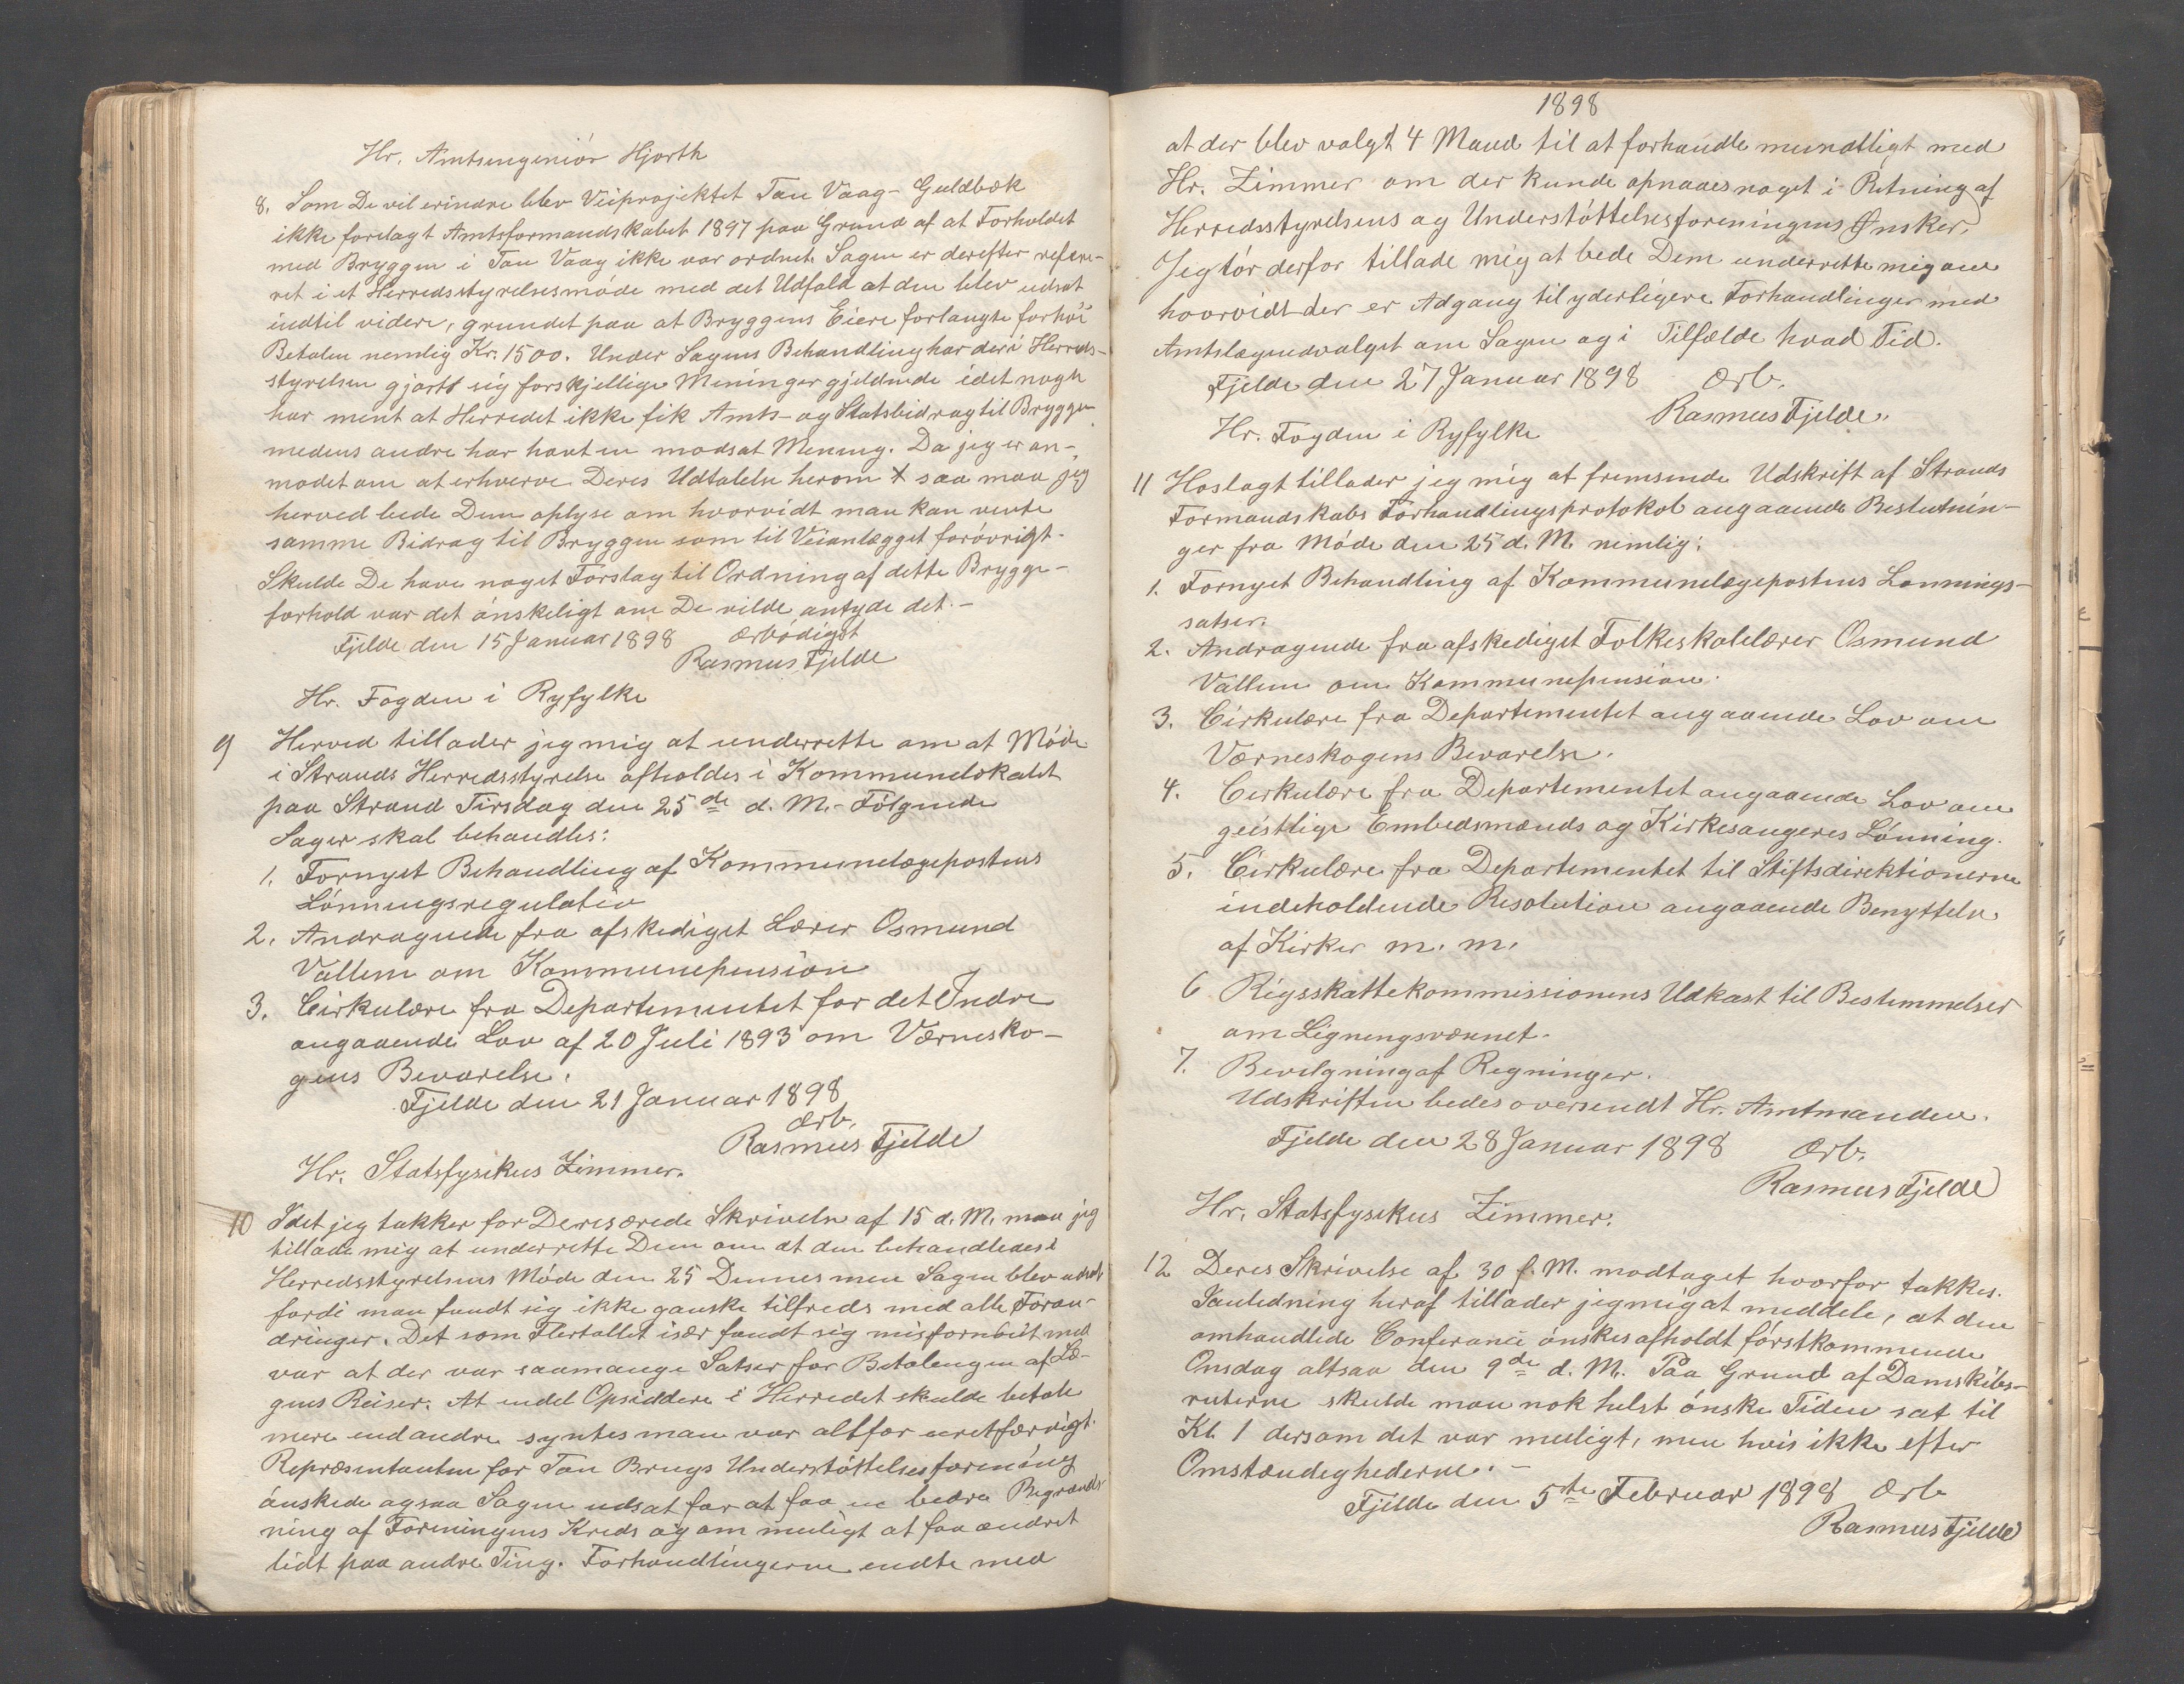 Hr. Amtsingeniör Hjorth
8. Som De vil erindre blev Veiprojektet Tau Vaag- Guldbæk
ikke forelagt Amtsformandskabet 1897 paa Grund af at Forholdet
med Bryggen i Tau Vaag ikke var ordnet. Sagen er derefter refere-
ret i et Herredsstyrelsesmöde med det Udfald at den blev udsat
indtil videre, grundet paa at Bryggens Eiere forlangte for höi
Betaling nemlig Kr. 1500. Under Sagens Behandling har der i Herreds-
styrelsen gjort sig forskjellige Meninger gjeldende idet nogle
har ment at Herredet ikke fik Amts- og Statsbidrag til Bryggen
medens andre har havt en modsat Mening. Da jeg er an-
modet om at erhverve Deres Udtalelse herom saa maa jeg
herved bede Dem oplyse om hvorvidt man kan vente
samme Bidrag til Bryggen som til Veianlægget forövrigt.
Skulde De have noget Forslag til Ordning af dette Brygge-
forhold var det önskeligt om De vilde antyde det.-
Fjelde den 15 Januar 1898 Ærbödigst
Rasmus Fjelde
Hr. Fogden i Ryfylke
9 Herved tillader jeg mig at underrette om at Möde
i Strands Herredsstyrelse afholdes i Kommunelokalet
paa Strand Tirsdag den 25de d. M.- Fölgende
Sager skal behandles:
1. Fornyet Behandling af Kommunelægepostens
Lönningsregulativ
2. Andragende fra afskediget Lærer Osmund
Vallem om Kommunepension
3. Cirkulære fra Departementet for det Indre
angaaende Lov af 20 Juli 1893 om Værnesko-
gens Bevarelse.
Fjelde den 21 Januar 1898
Ærb.
Rasmus Fjelde
Hr. Statsfysikus Zimmer.
10 Idet jeg takker for Deres ærede Skrivelse af 15 d. M. maa jeg
tillade mig at underrette Dem om at den behandledes i
Herredsstyrelsens Möde den 25 Dennes men Sagen blev udsat
fordi man fandt sig ikke ganske tilfreds med alle Foran-
dringer. Det som Flertallet især fandt sig misfornöiet med
var at der var saamange Satser for Betalingen af Læ-
gens Reiser. At endel Opsiddere i Herredet skulde betale
mere end andre syntes man var altfor uretfærdigt.
Repræsentanten for Tau Brugs Understöttelsesforening
önskede ogsaa Sagen udsat for at faa en bedre Begrænds-
ning af Foreningens Kreds og om muligt at faa ændret
lidt paa andre Ting. Forhandlingerne endte med
1898
at der blev valgt 4 Mand til at forhandle mundtligt med
Hr. Zimmer om der kunde opnaaes noget i Retning af
Herredsstyrelsens og Understöttelsesforeningens Ønsker.
Jeg tör derfor tillade mig at bede Dem underrette mig om
hvorvidt der er Adgang til yderligere Forhandlinger med
Amtslægeudvalget om Sagen og i Tilfælde hvad Tid.
Fjelde den 27 Januar 1898 Ærb.
Rasmus Fjelde.
Hr. Fogden i Ryfylke
11 Hoslagt tillader jeg mig at fremsende Udskrift af Strands
Formandskabs Forhandlingsprotokol angaaende Beslutnin-
ger fra Möde den 25 d. M. nemlig:
1. Fornyet Behandling af Kommunelægepostens Lønnings-
satser.
2. Andragende fra afskediget Folkeskolelærer Osmund
Vallem om Kommunepension.
3. Cirkulære fra Departementet angaaende Lov om
Værneskogens Bevarelse.
4. Cirkulære fra Departementet angaaende Lov om
geistlige Embedsmænds og Kirkesangeres Lönning.
5. Cirkulære fra Departementet til Stiftsdirektionerne
indeholdende Resolution angaaende Benyttelse
af Kirker m. m.
6 Rigsskattekommissionens Udkast til Bestemmelser
om Ligningsvæsnet.
7. Bevilgning af Regninger.
Udskriften bedes oversendt Hr. Amtmanden.
Fjelde den 28 Januar 1898 Ærb.
Rasmus Fjelde
Hr. Statsfysikus Zimmer.
12 Deres Skrivelse af 30 f. M. modtaget hvorfor takkes.
I anledning heraf tillader jeg mig at meddele, at den
omhandlede Conferance önskes afholdt förstkommende
Onsdag altsaa den 9de d. M. Paa Grund af Damskibs-
ruterne skulde man nok helst önske Tiden sat til
Kl. 1 dersom det var muligt, men hvis ikke efter
Omstændighederne.-
Fjelde den 5te Februar 1898 Ærb
Rasmus Fjelde